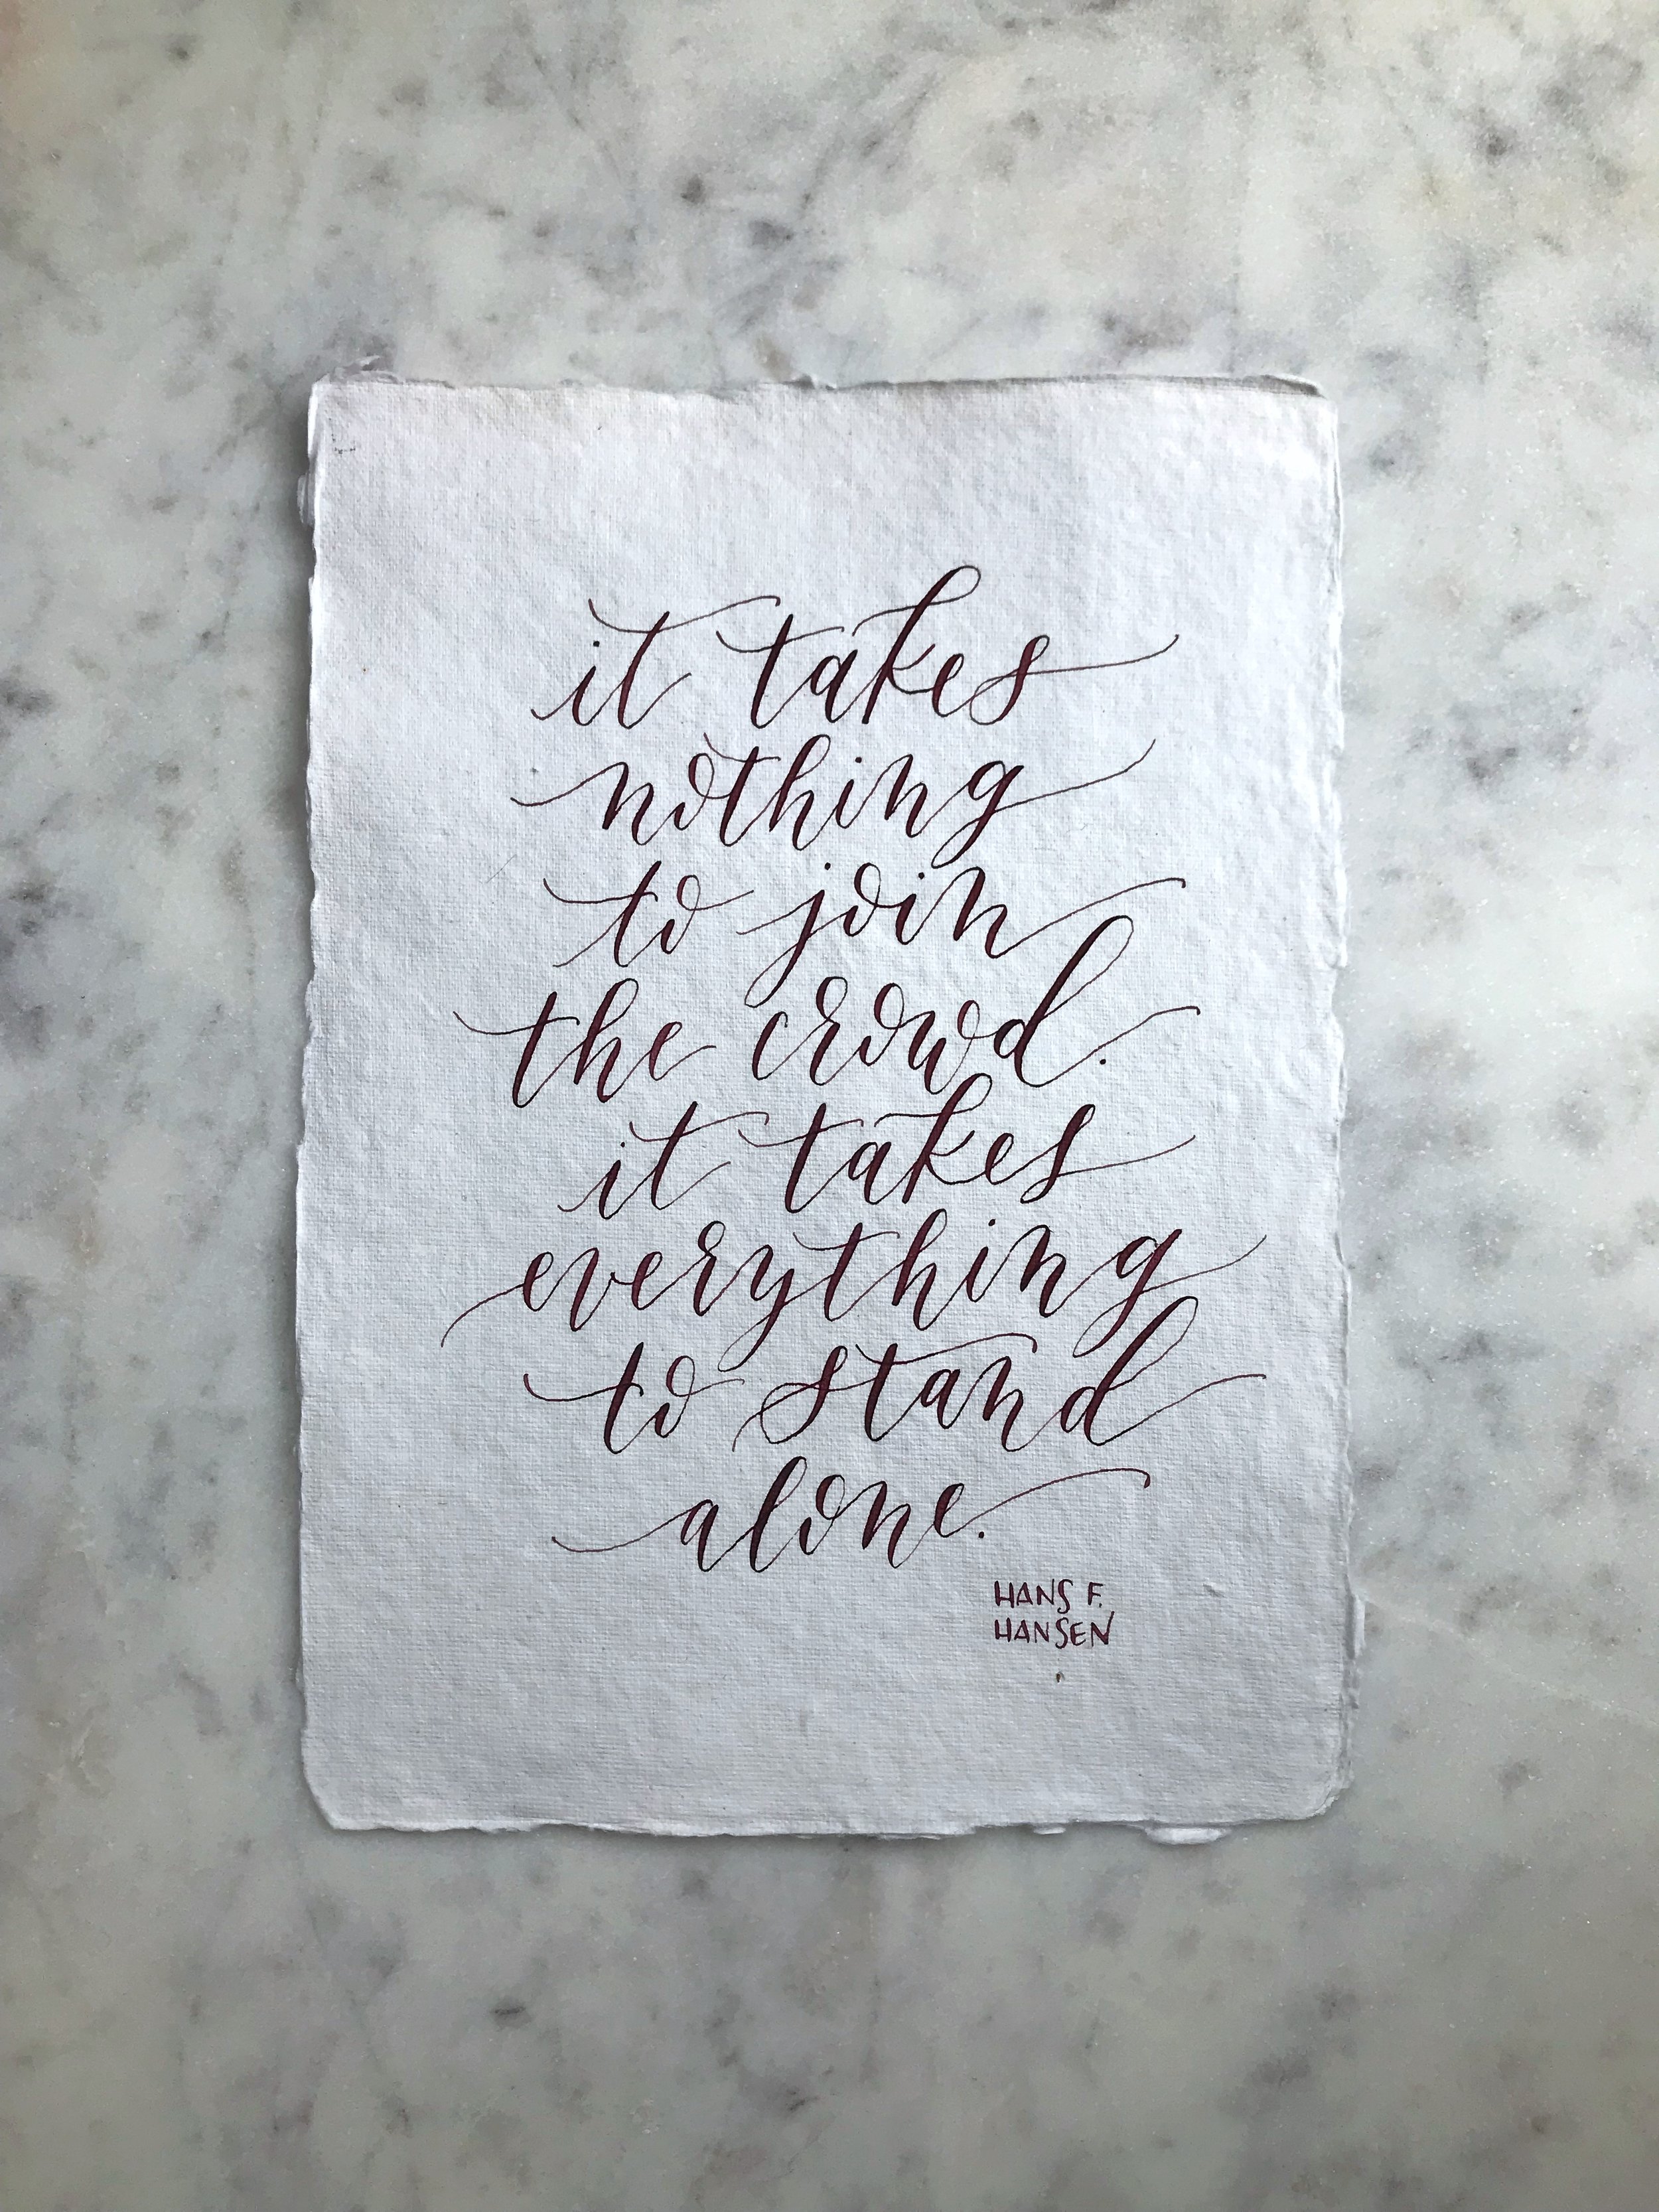 it takes
nothing
to join
the crowd.
it takes
everything
to stand
alone.
HANS F.
HANSEN